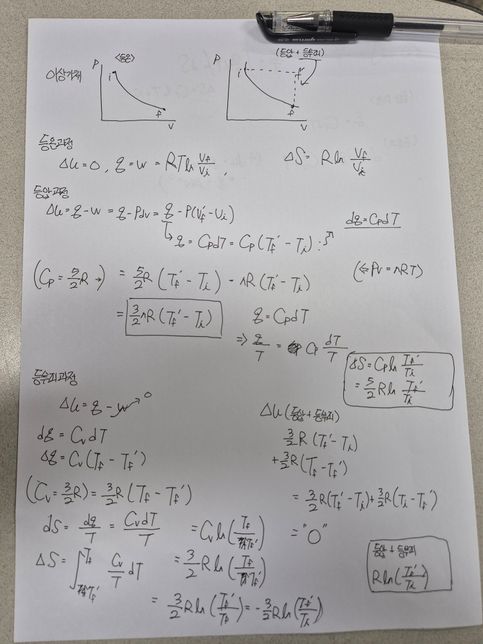 이상기체
<등온>
P
i
f
V
(등압 + 등부피)
P
i
f'
f
V
등온과정
Δu=0, q=w = RTln Vf/Vi, ΔS= Rln Vf/Vi
등압과정
Δu=q-w = q-Pdv = q-P(Vf'-Vi)
dq=CpdT
↳ q=CpdT=Cp(Tf'-Ti):
(Cp=5/2R →) = 5/2R(Tf'-Ti) - nR(Tf'-Ti) (⇐Pv=nRT)
= 3/2nR(Tf'-Ti)
q=CpdT
⇒ q/T = Cp dT/T
ΔS=Cpln Tf'/Ti
= 5/2Rln Tf'/Ti
등부피과정
Δu=q-w→0
dq=CvdT
Δq=Cv(Tf-Tf')
(Cv=3/2R)=3/2R(Tf-Tf')
dS=dq/T=CvdT/T =Cvln(Tf/Tf')
ΔS=∫Tf'Tf Cv/T dT =3/2Rln(Tf/Tf')
= 3/2Rln(Tf/Tf')=-3/2Rln(Tf'/Ti)
Δu(등압+등부피)
3/2R(Tf'-Ti)
+3/2R(Tf-Tf')
= 3/2R(Tf'-Ti)+3/2R(Ti-Tf')
="0"
등압 + 등부피
Rln(Tf'/Ti)